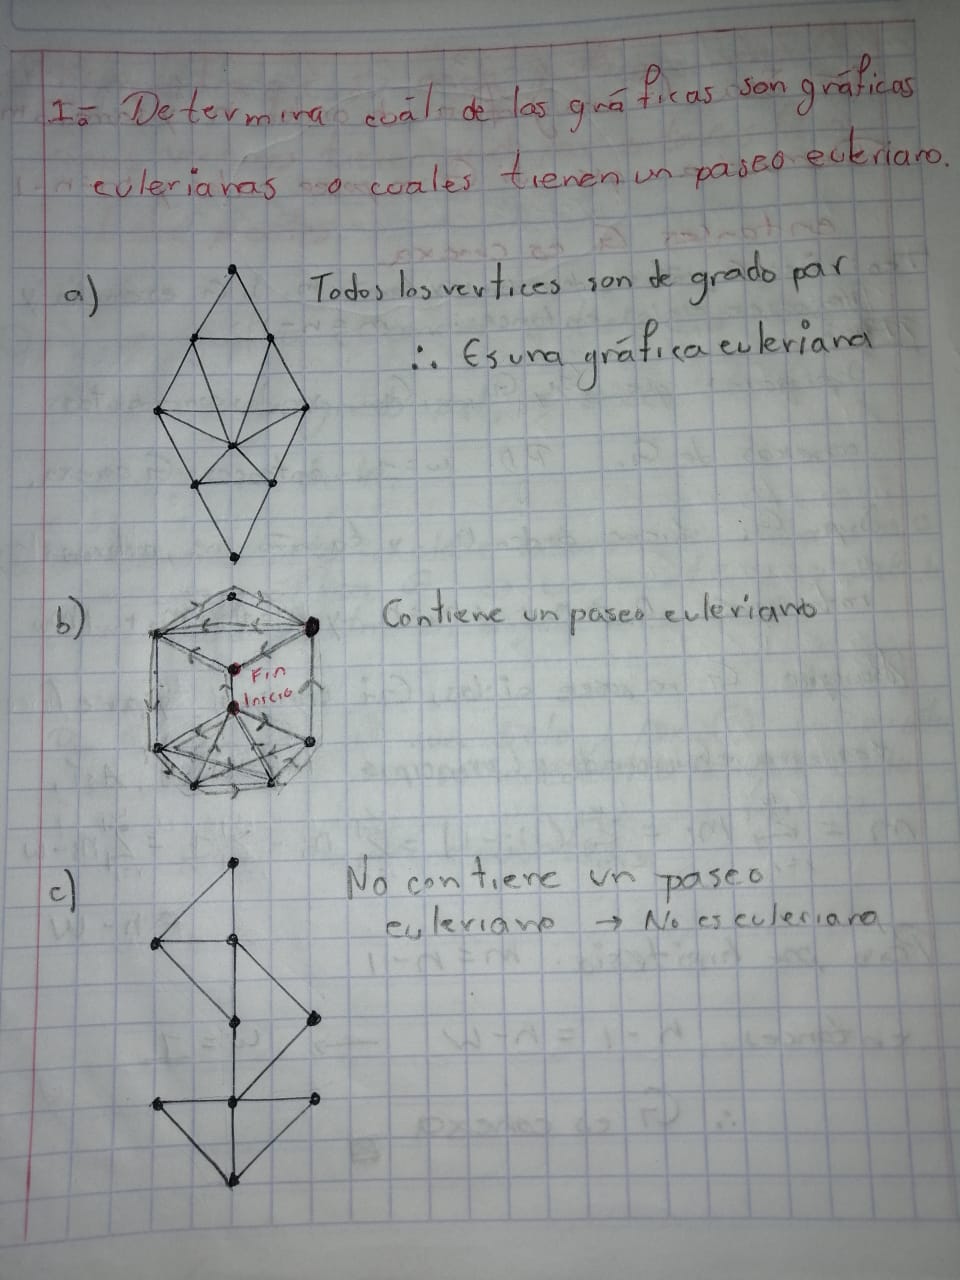 1.- Determina cuál de las gráficas son gráficas
eulerianas o cuales tienen un paseo euleriano.
a) Todos los vertices son de grado par
∴ Es una gráfica euleriana
b) Contiene un paseo euleriano
Fin
Inicio
c) No contiene un paseo
euleriano → No es euleriana